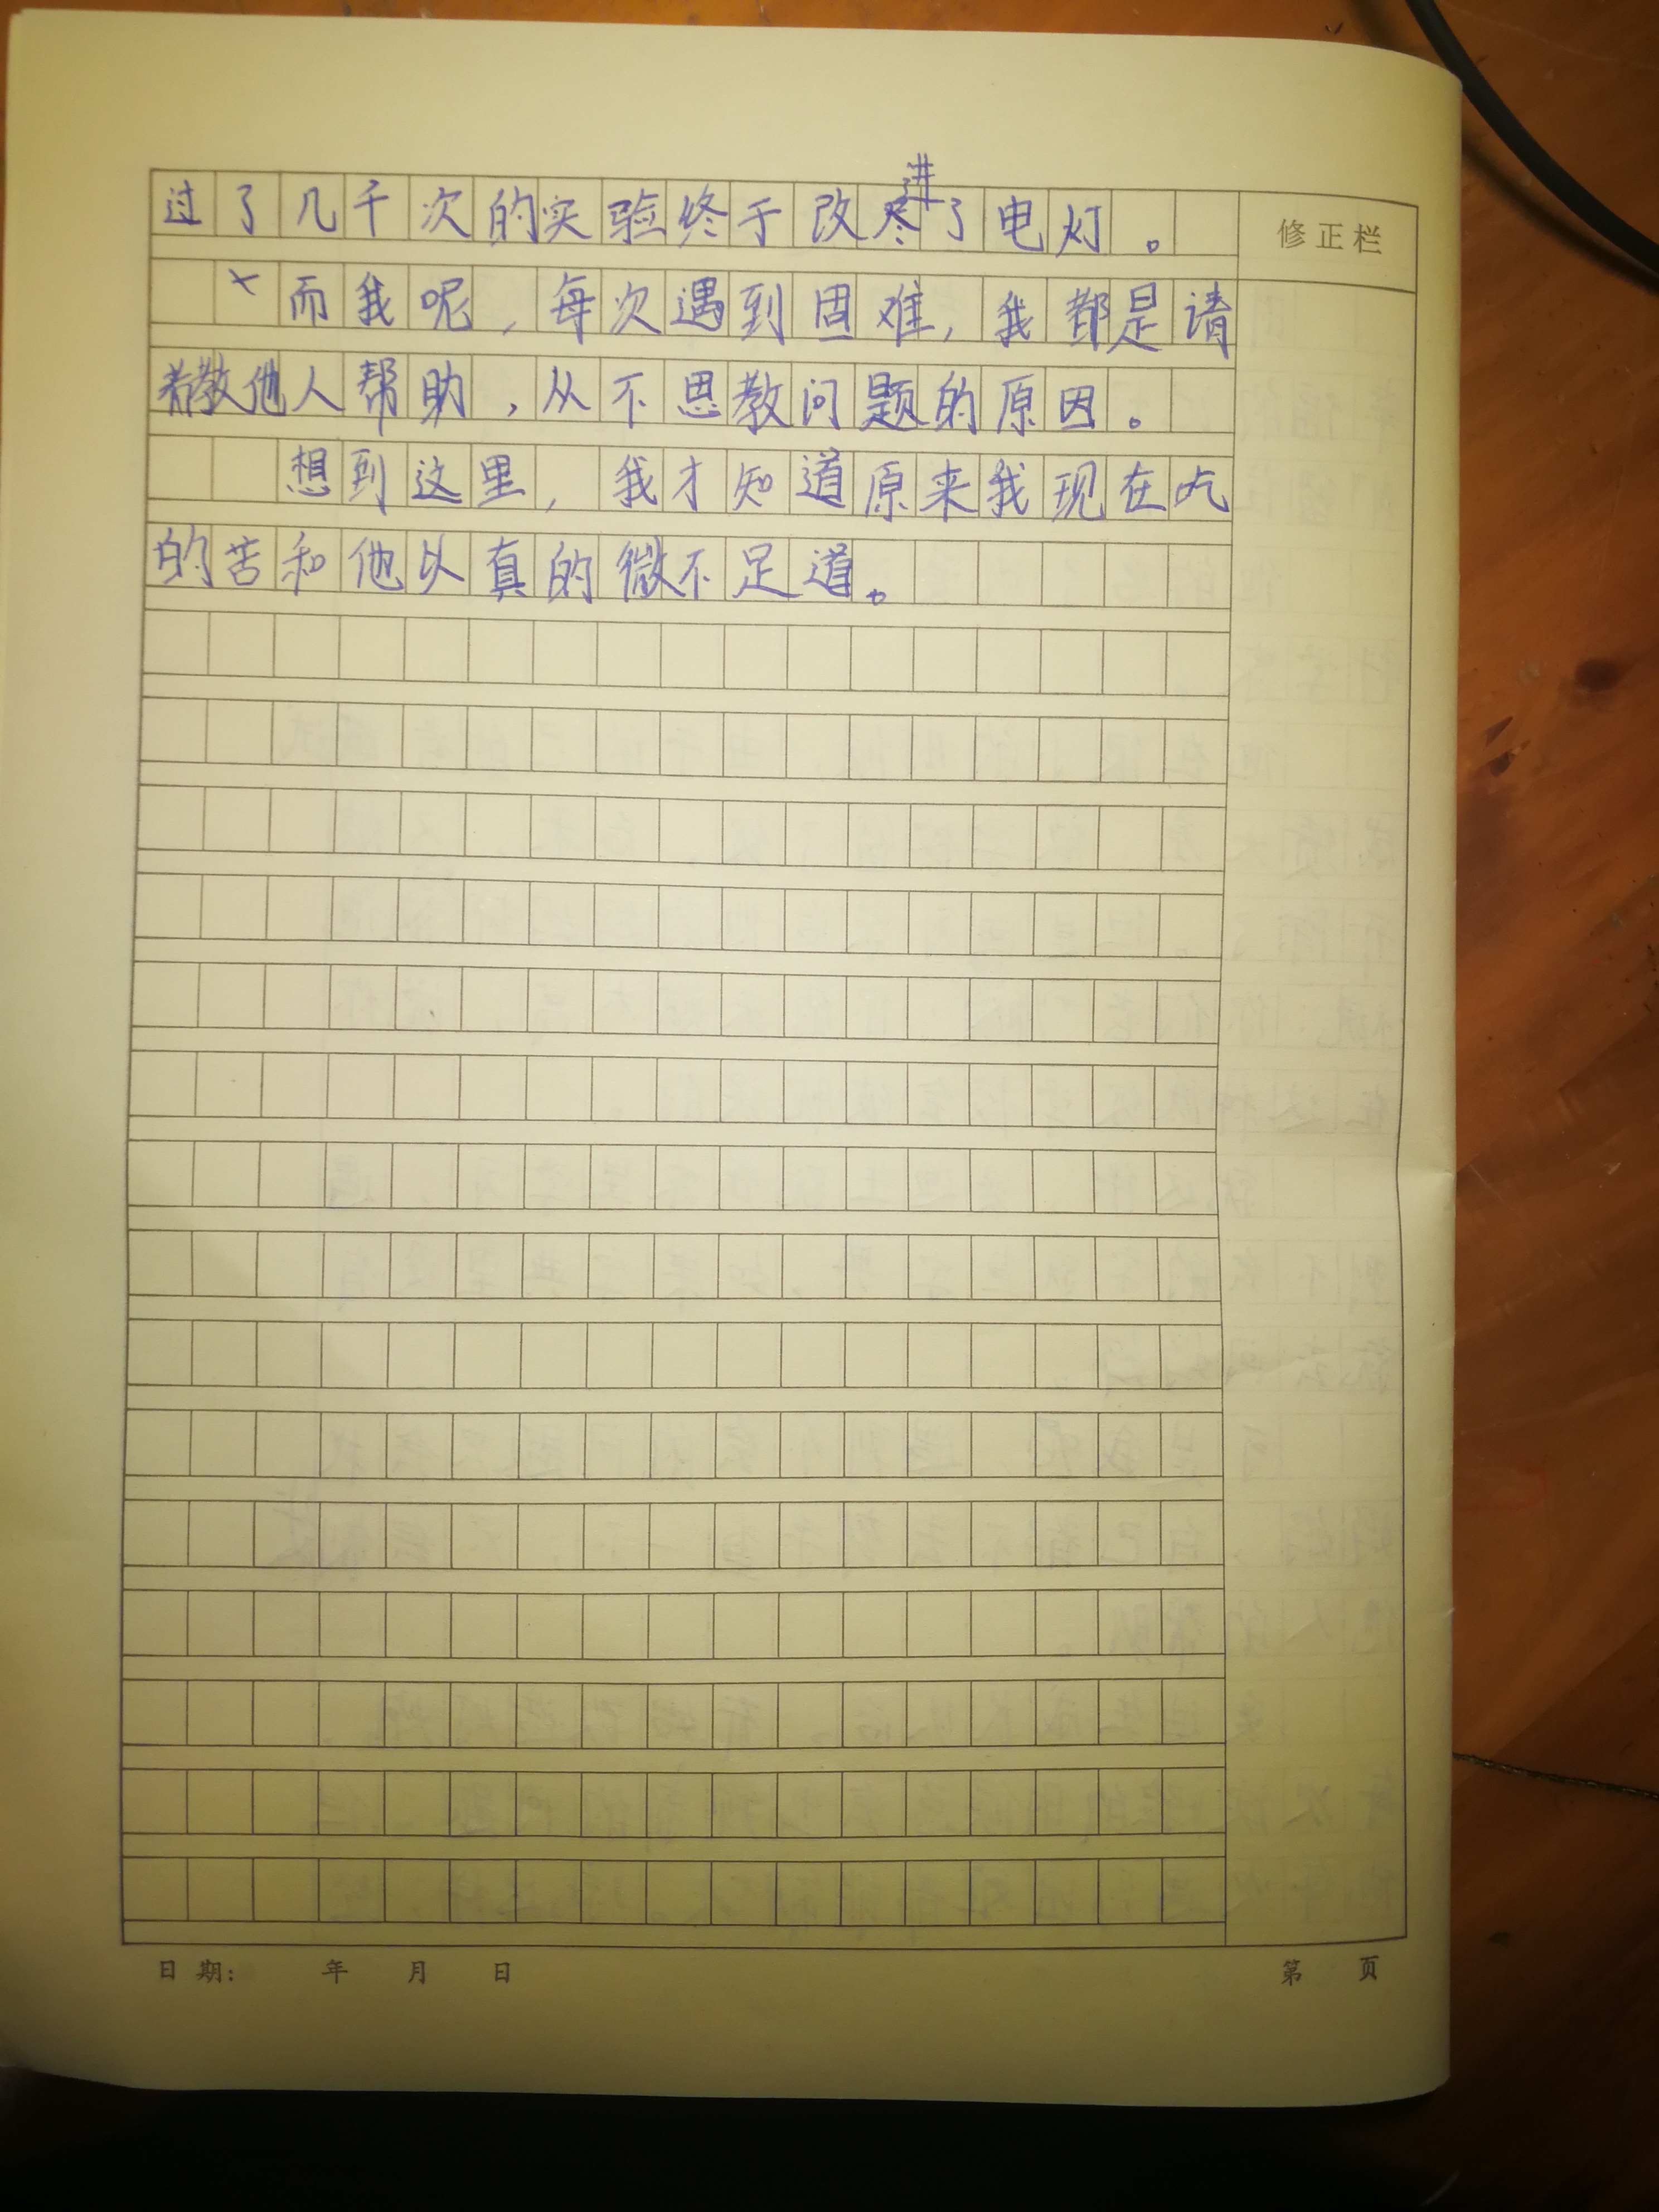 过了几千次的实验终于改进了电灯。
修正栏
而我呢，每次遇到困难，我都是请
教他人帮助，从不思教问题的原因。
想到这里，我才知道原来我现在吃
的苦和他以真的微不足道。
日期： 年 月 日 第 页